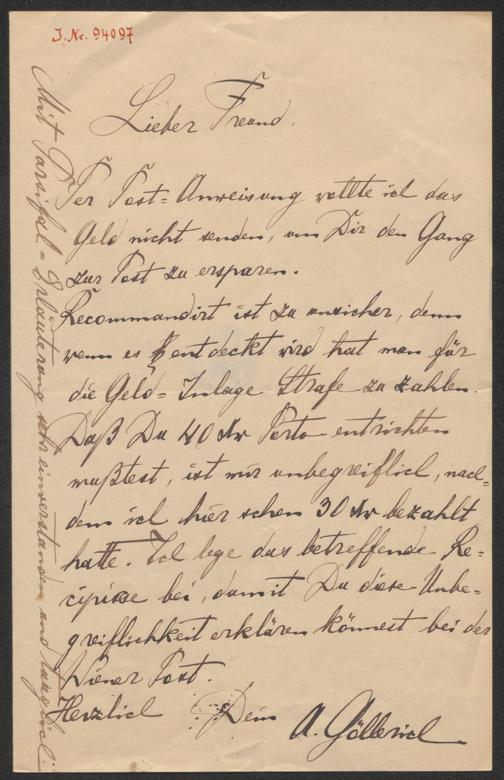 J. Nr. 94097
Lieber Freund.
Per Post-Anweisung wollte ich das
Geld nicht senden, um Dir den Gang
zur Post zu ersparen.
Recommandirt ist zu unsicher, denn
wenn es entdeckt wird hat man für
die Geld-Inlage Strafe zu zahlen.
Daß Du 40 Kr Porto entrichten
mußtest, ist mir unbegreiflich, nach-
dem ich hier schon 30 Kr bezahlt
hatte. Ich lege das betreffende Re-
cipisse bei, damit Du diese Unbe-
greiflichkeit erklären könnest bei der
Wiener Post.
Herzlich Dein A. Göllerich
Mit Parsifal-Erläuterung sehr einverstanden und